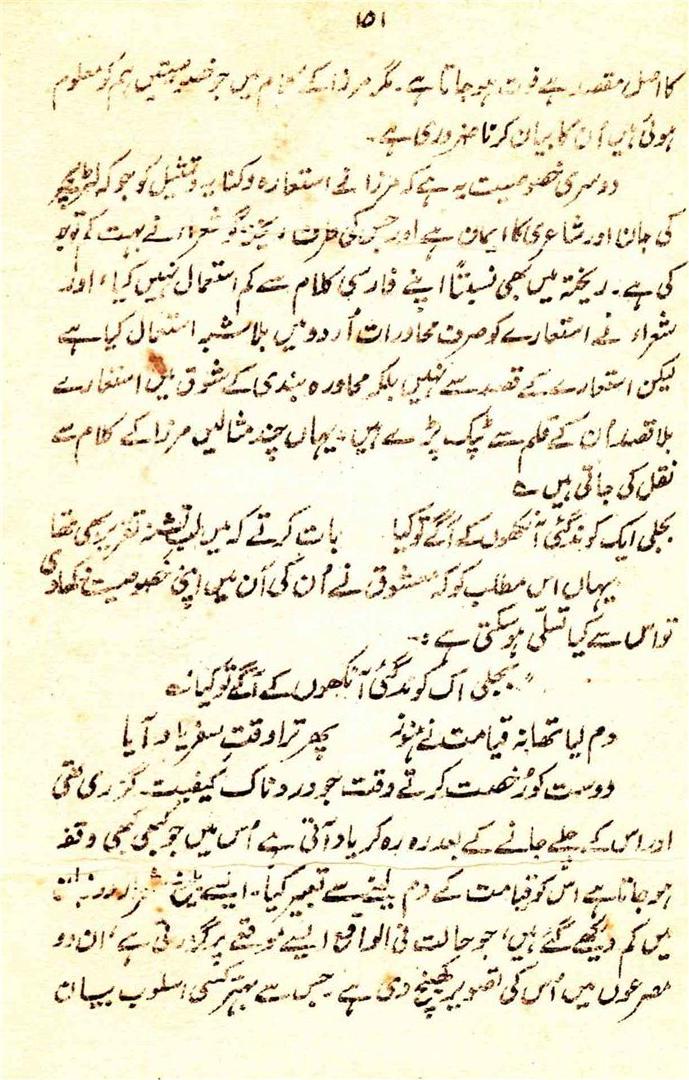 ۱۵۱
کا اصل مقصد ہے فوت ہو جاتا ہے۔ مگر مرزا کے کلام میں جو خصوصیتیں ہم کو معلوم
ہوئی ہیں اُن کا بیان کرنا ضروری ہے۔
دوسری خصوصیت یہ ہے کہ مرزا نے استعارہ و کنایہ و تمثیل کو جو کہ لٹریچر
کی جان اور شاعری کا ایمان ہے اور جس کی طرف ریختہ گو شعراء نے بہت کم توجہ
کی ہے۔ ریختہ میں بھی نسبتاً اپنے فارسی کلام سے کم استعمال نہیں کیا، اور
شعراء نے استعارے کو صرف محاورات اُردو میں بلاشبہ استعمال کیا ہے
لیکن استعارے کے قصد سے نہیں بلکہ محاورہ بندی کے شوق میں استعارے
بلا قصد اُن کے قلم سے ٹپک پڑے ہیں۔ یہاں چند مثالیں مرزا کے کلام سے
نقل کی جاتی ہیں ؎
بجلی ایک کوند گئی آنکھوں کے آگے تو کیا بات کرتے کہ میں لب تشنہ تقریر بھی تھا
یہاں اس مطلب کو کہ معشوق نے اُن کی آن میں اپنی خصوصیت دکھا دی
تو اس سے کیا تسلّی ہو سکتی ہے :۔
"بجلی اک کوند گئی آنکھوں کے آگے تو کیا"
دم لیا تھا نہ قیامت نے ہنوز پھر ترا وقتِ سفر یاد آیا
دوست کو رُخصت کرتے وقت جو دردناک کیفیت گزری تھی
اور اس کے چلے جانے کے بعد رہ رہ کر یاد آتی ہے اُس میں جو کبھی کبھی وقفہ
ہو جاتا ہے اس کو قیامت کے دم لینے سے تعبیر کیا۔ ایسے بلیغ شعر اردو زبان
میں کم دیکھے گئے ہیں، جو حالت فی الواقع ایسے موقعے پر گزرتی ہے، ان دو
مصرعوں میں اُس کی تصویر کھینچ دی ہے جس سے بہتر کسی اسلوب بیان